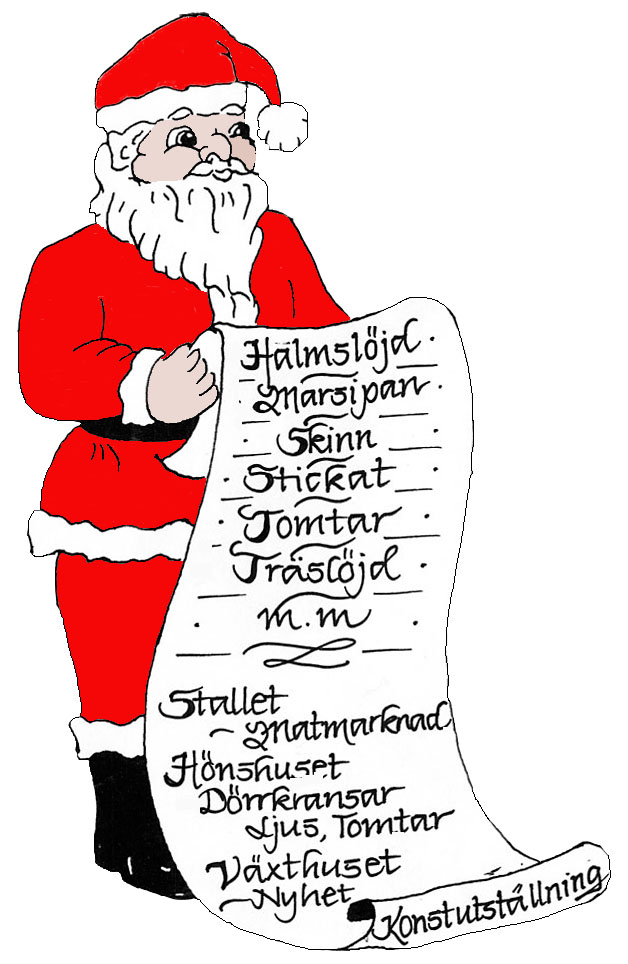 Halmslöjd.
Marsipan.
Skinn
Stickat
Tomtar
Träslöjd
m.m
Stallet
~ Matmarknad
Hönshuset
Dörrkransar
Ljus, Tomtar
Växthuset
~ Nyhet
Konstutställning